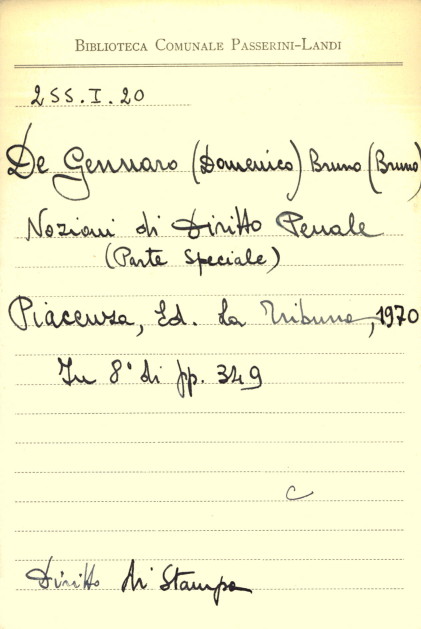 BIBLIOTECA COMUNALE PASSERINI-LANDI
255.I.20
De Gennaro (Domenico) Bruno (Bruno)
Nozioni di Diritto Penale
(Parte Speciale)
Piacenza, Ed. La Tribuna, 1970
In 8° di pp. 349
C
Diritto di Stampa